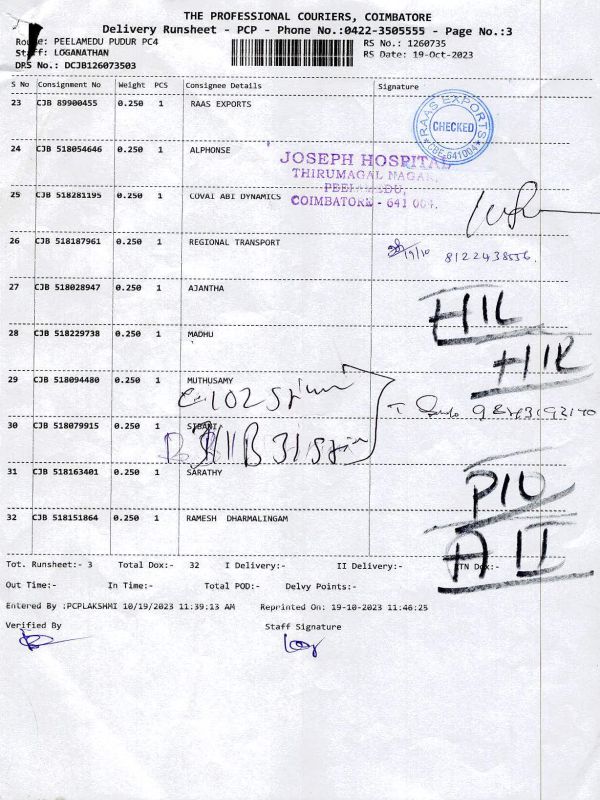 THE PROFESSIONAL COURIERS, COIMBATORE
Delivery Runsheet - PCP - Phone No.:0422-3505555 - Page No.:3
Route: PEELAMEDU PUDUR PC4 RS No.: 1260735
Staff: LOGANATHAN RS Date: 19-Oct-2023
DRS No.: DCJB126073503
S No Consignment No Weight PCS Consignee Details Signature
23 CJB 89900455 0.250 1 RAAS EXPORTS
RAAS EXPORTS
CHECKED
CBE-641004
24 CJB 518054646 0.250 1 ALPHONSE
JOSEPH HOSPITAL
THIRUMAGAL NAGAR,
PEELAMEDU,
COIMBATORE - 641 004.
25 CJB 518281195 0.250 1 COVAI ABI DYNAMICS
26 CJB 518187961 0.250 1 REGIONAL TRANSPORT
19/10 8122438556.
27 CJB 518028947 0.250 1 AJANTHA
28 CJB 518229738 0.250 1 MADHU
29 CJB 518094480 0.250 1 MUTHUSAMY
30 CJB 518079915 0.250 1 SIBANI
31 CJB 518163401 0.250 1 SARATHY
32 CJB 518151864 0.250 1 RAMESH DHARMALINGAM
Tot. Runsheet:- 3 Total Dox:- 32 I Delivery:- II Delivery:- RTN Dox:-
Out Time:- In Time:- Total POD:- Delvy Points:-
Entered By :PCPLAKSHMI 10/19/2023 11:39:13 AM Reprinted On: 19-10-2023 11:46:25
Verified By Staff Signature